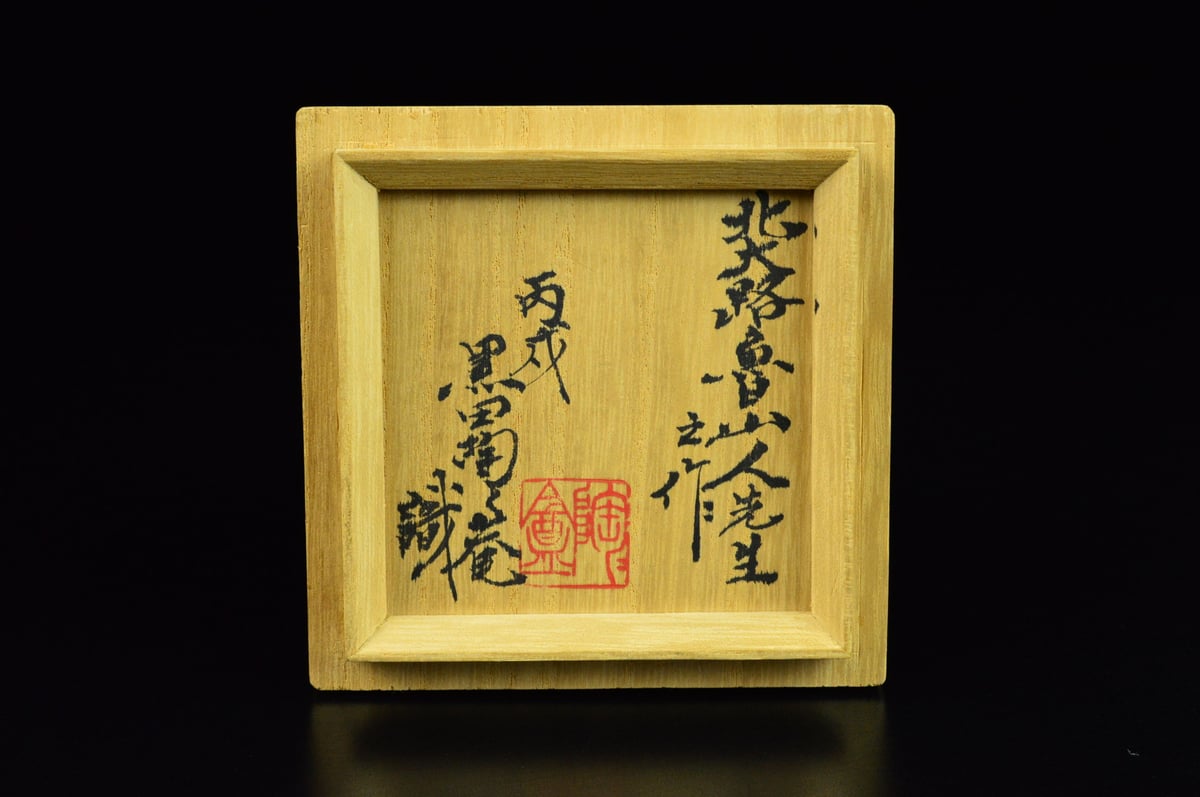 北大路魯山人先生
之作
丙戌
黒田陶々菴
識
陶々菴